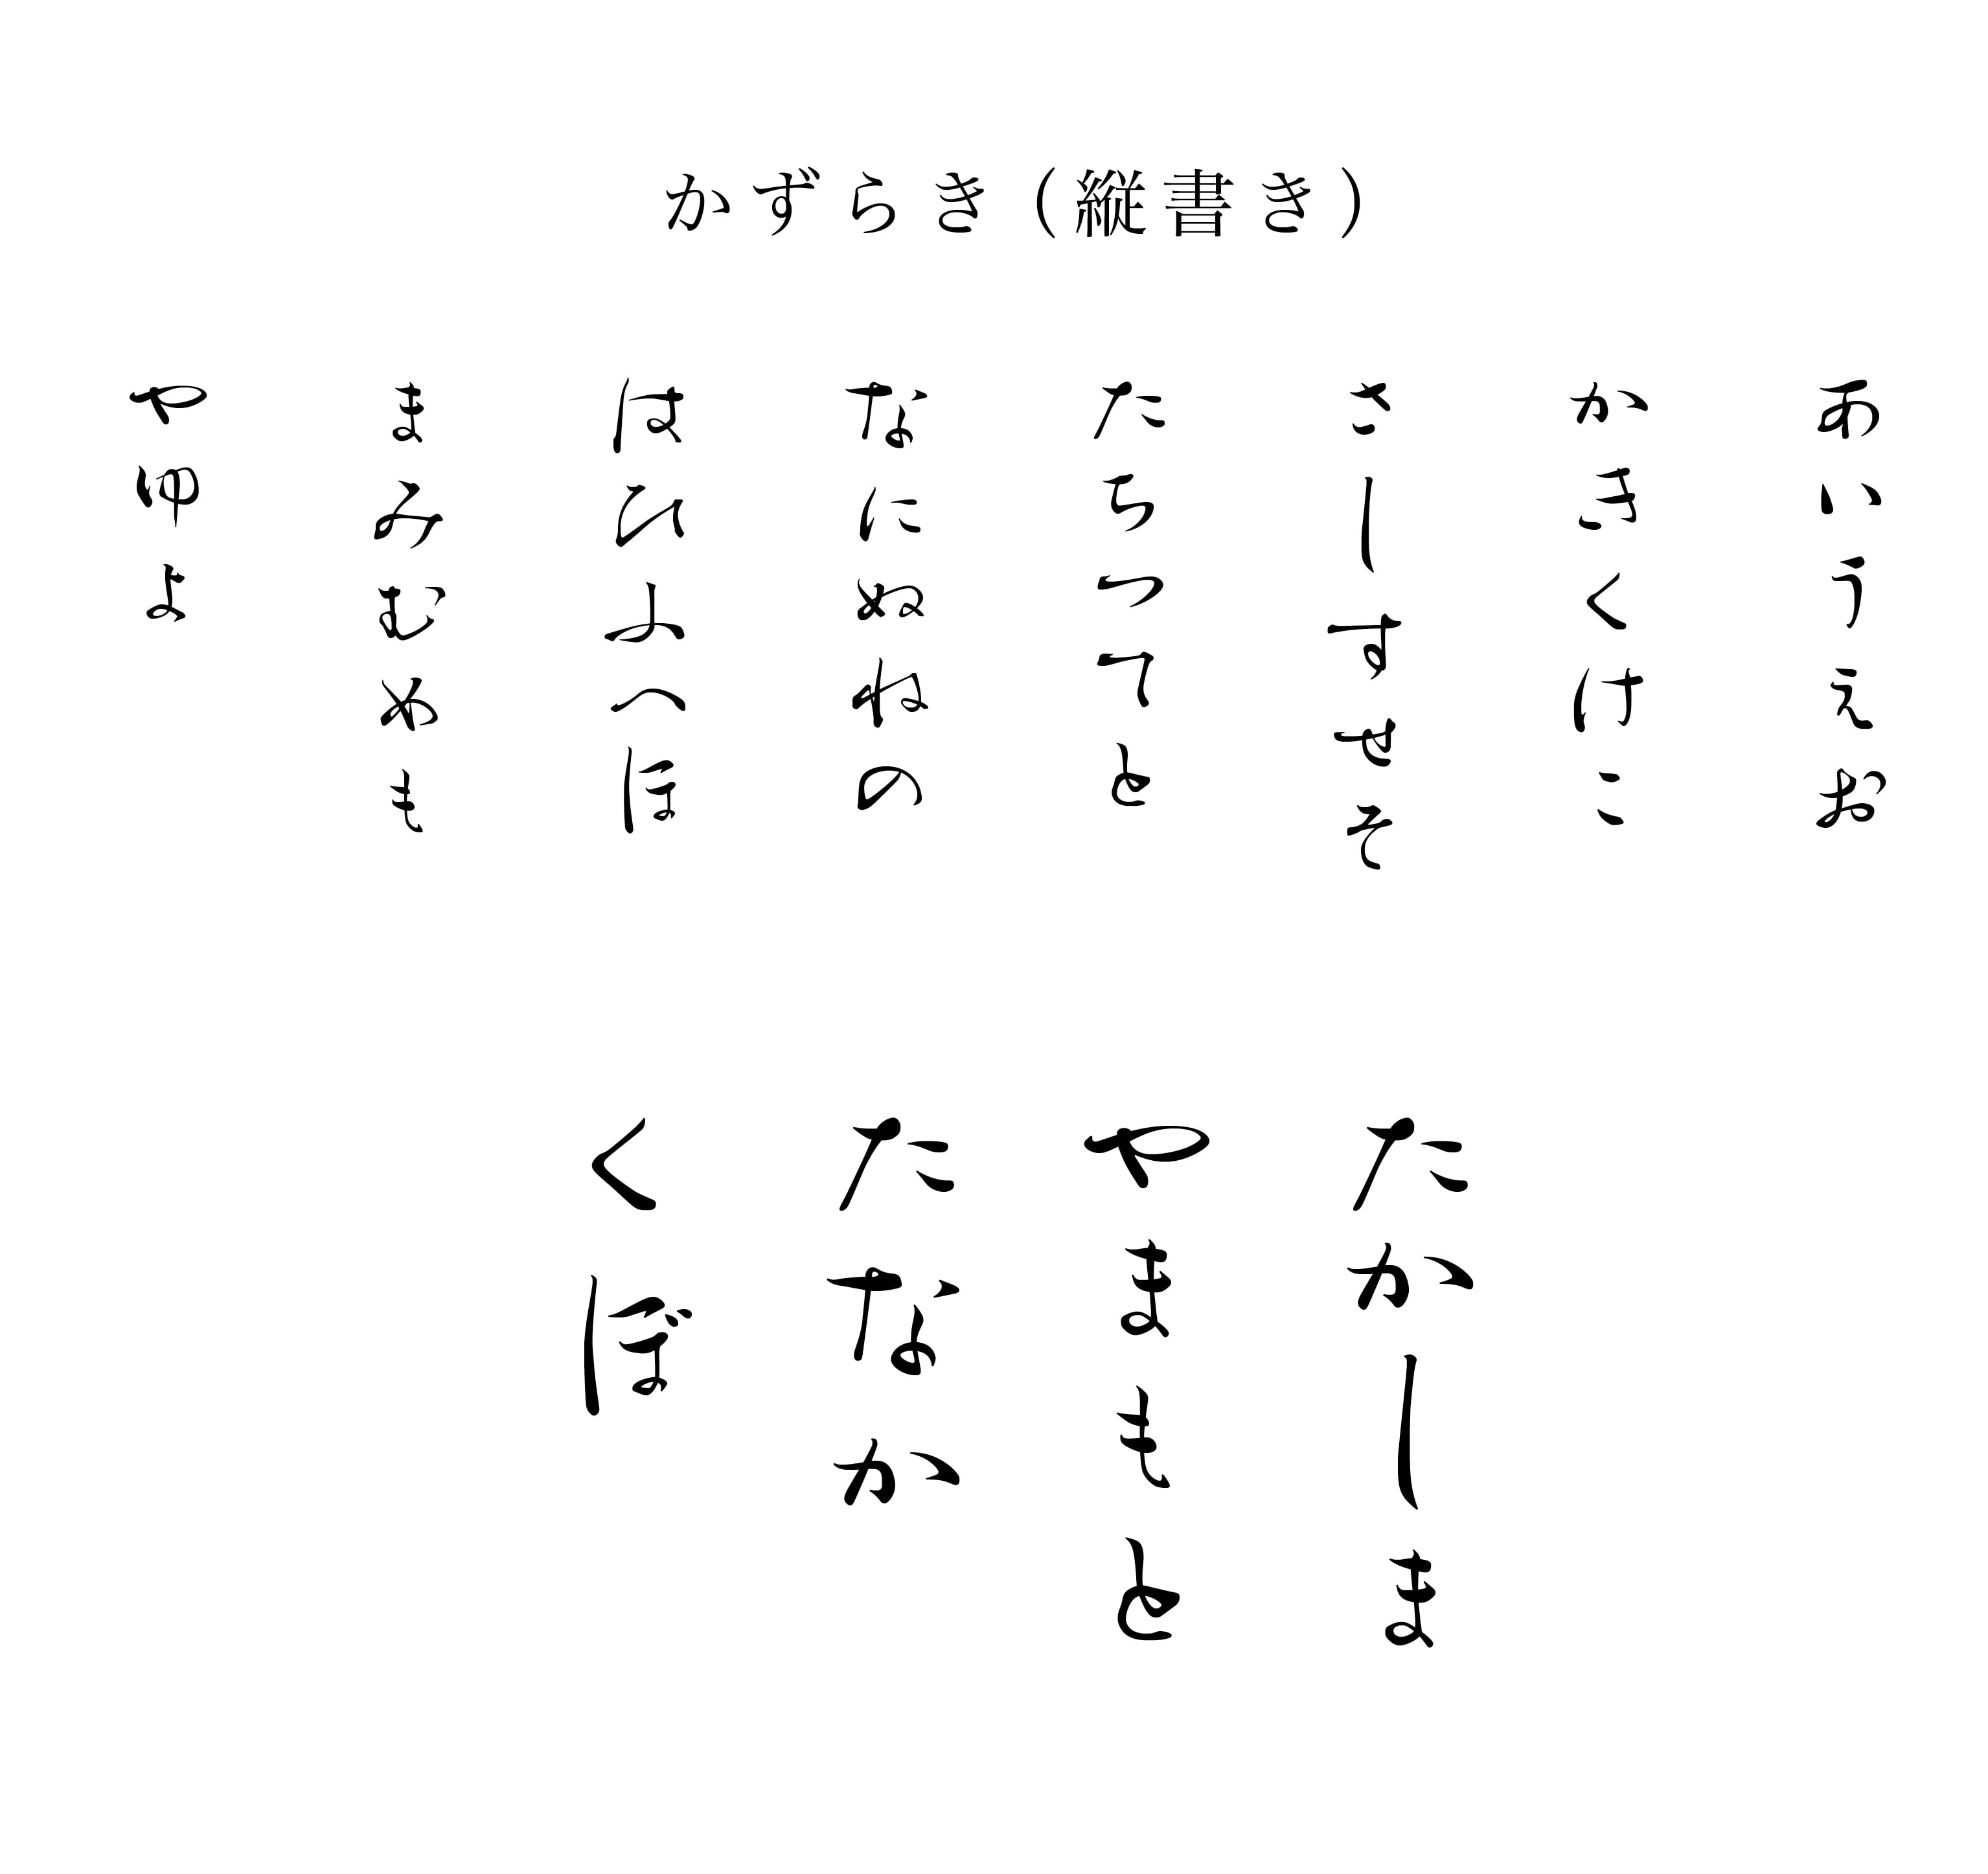 かずらき（縦書き）
あいうえお
かきくけこ
さしすせそ
たちつてと
なにぬねの
はひふへほ
まみむめも
やゆよ
たかしま
やまもと
たなか
くぼ